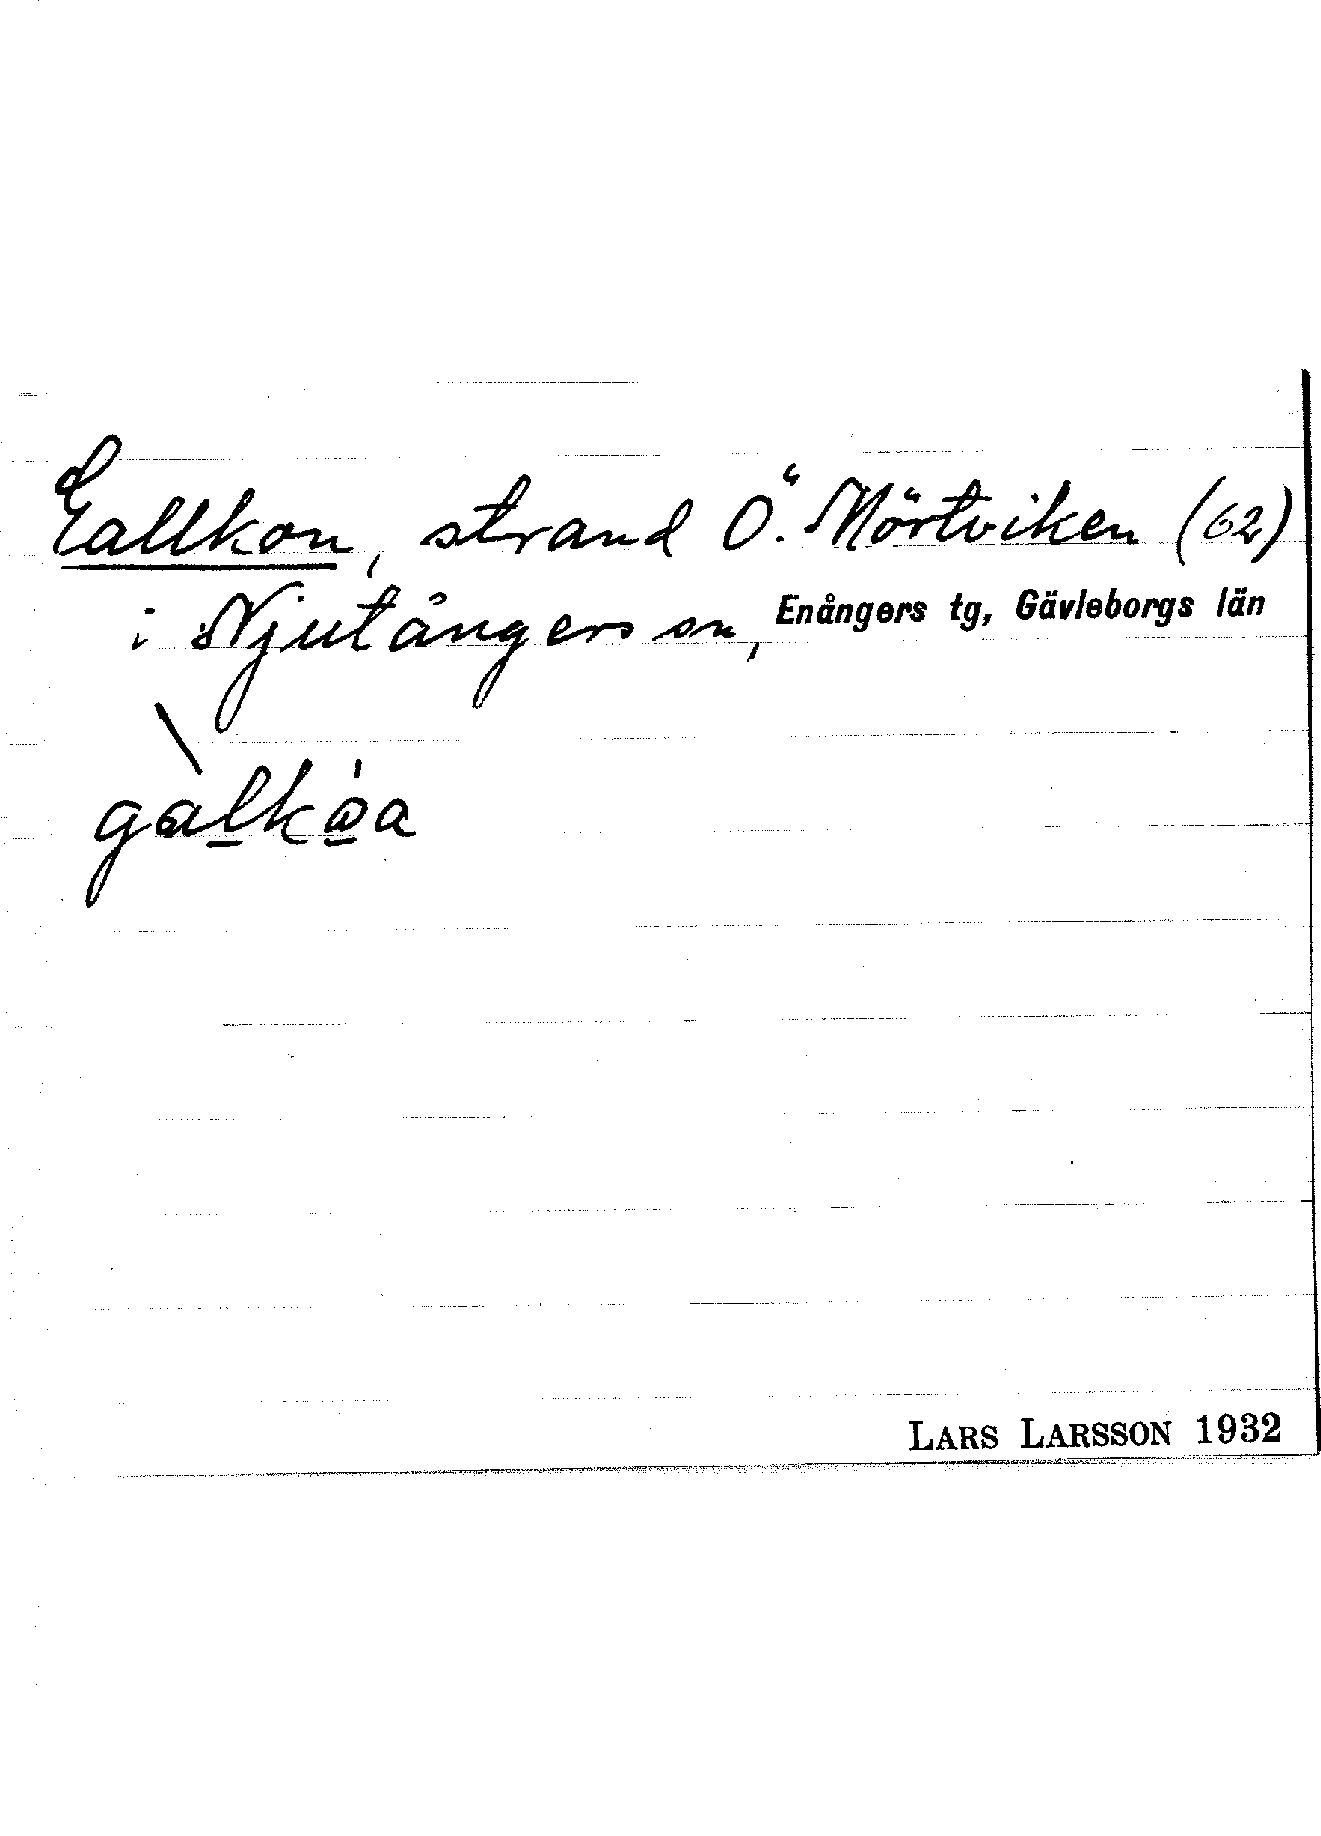 Gallkon, strand Ö. Mörtviken (62)
i Njutångers sn, Enångers tg, Gävleborgs län
galkåa
LARS LARSSON 1932